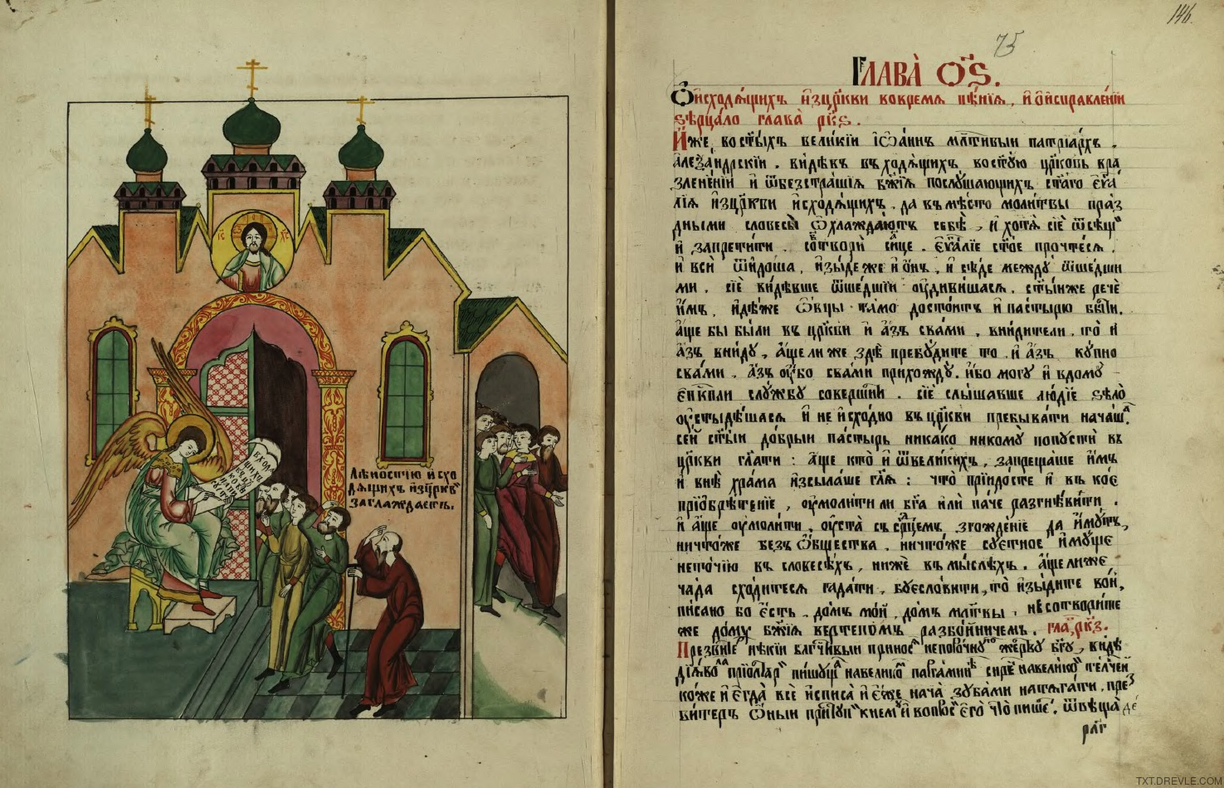 ІС ХС
ВХОДЯ
Лѣностїю исхо
дящихъ изцркв
заглаждаетъ.
146.
75
Глава ѺЅ.
Ѡ исходящихъ изцркви вовремя пѣнїя, и ѡ исправленїи
зѣрцало глава ркѕ.
Иже востыхъ великїи їѡаннъ млтивыи патрїархъ
алеѯандрскїи. видѣвъ входящихъ востую црковь кра
злененїи и ѿбезстрашїя бжїя послушающихъ стаго еѵа
лїя изцркви исходящихъ, да вмѣсто молитвы праз
дными словесы ѡхлаждаютъ себѣ, и хотя сїе ѿвещ
и запретити. сотвори сице. еѵалїе стое прочтеся.
и вси ѿидоша, изыде же и онъ, и сѣде между ѿшедши
ми. сїе видѣвше ѿшедшїи оудивишася. стыиже рече
имъ, идѣже ѡвцы тамо достоитъ и пастырю быти.
аще бы были въ цркви и азъ свами, внидители, то и
азъ вниду, аще ли же здѣ пребудите то и азъ купно
свами. азъ оубо свами прихожду. ибо могу и вдому
епкпли службу совершити. сїе слышавше людїе зѣло
оустыдѣшася и не исходно въ цркви пребывати начаш
сеи стыи добрыи пастырь никако никому попусти въ
цркви глати : аще кто и ѿвеликихъ, запрещаше имъ
и внѣ храма изсылаше гля : что прїидосте и въ кое
прїобрѣтенїе, оумолити ли бга или паче разгнѣвити.
и аще оумолити, оуста съ срдцемъ згожденїе да имутъ,
ничтоже безъ ѡбщества, ничтоже суетное имуще
неточїю въ словесѣхъ, ниже въ мыслѣхъ. аще лиже
чада сходитеся гадати, буесловити, то изыдите вон,
писано бо есть, домъ мои, домъ млтвы, не сотворите
же дому бжїя вертепомъ разбоиничемъ. гла, ркз.
Презвитеръ нѣкїи блгчивыи принос непорочную жерву бгу, видѣ
дїявола приолтар пишуща навелико паргаминѣ сирѣ навелико телчеи
коже и егда все исписа и еже нача зубами натягати, пре
витеръ ѡныи приступ кнему и вопрос его что пише, ѿвѣща де
раг
TXT.DREVLE.COM